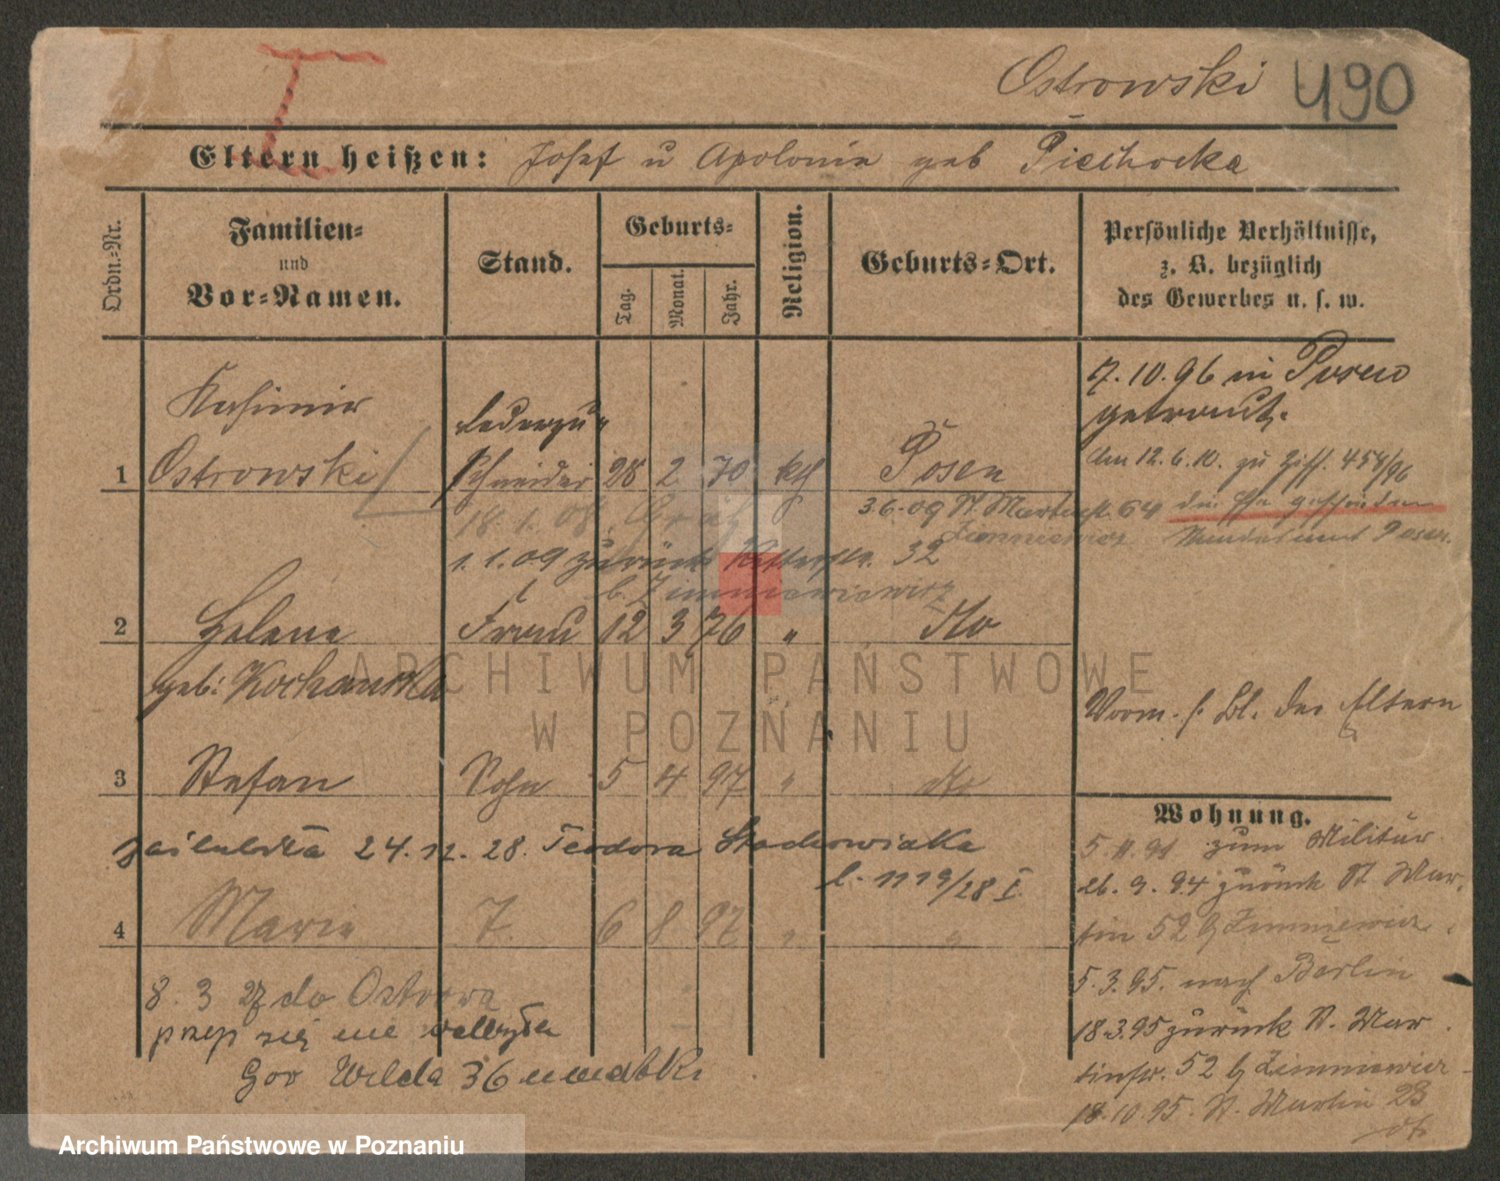 Ostrowski 490
I
Eltern heißen: Josef u Apolonia geb Piechocka
Ordn.-Nr.
Familien-
und
Vor-Namen.
Stand.
Geburts-
Tag.
Monat.
Jahr.
Religion.
Geburts-Ort.
Persönliche Verhältnisse,
z. B. bezüglich
des Gewerbes u. s. w.
17.10.96 in Posen
getraut.
Am 12.6.10. zu Ziff. 454/96
die Ehe geschieden
Standesamt Posen.
Kasimir Lederzu-
1 Ostrowski schneider 28 2 70 kth Posen
18.1.08. Graetz 3.6.09 St. Martinstr. 64
Zimniewicz
1.1.09 zurück Ritterstr. 32
b. Zimmiewicz
2 Helene Frau 12 3 76 " dto
geb: Kochanska
Vorm. s. Bl. der Eltern
3 Stefan Sohn 5 4 97 " dto
zaślubiła 24.11.28. Teodora Stachowiaka
l. 1119/28 I.
4 Marie T. 6 8 97 " "
8.3 27 do Ostrowa
przep się nie
Gór Wilda 36 u matki
Wohnung.
5.11.91 zum Militär
26.9.94 zurück St. Mar-
tin 52 b Zimniewicz
5.3.95. nach Berlin
18.3.95 zurück St. Mar
tinstr. 52 b Zimniewicz
18.10.95. St. Martin 23
ARCHIWUM PAŃSTWOWE
W POZNANIU
Archiwum Państwowe w Poznaniu